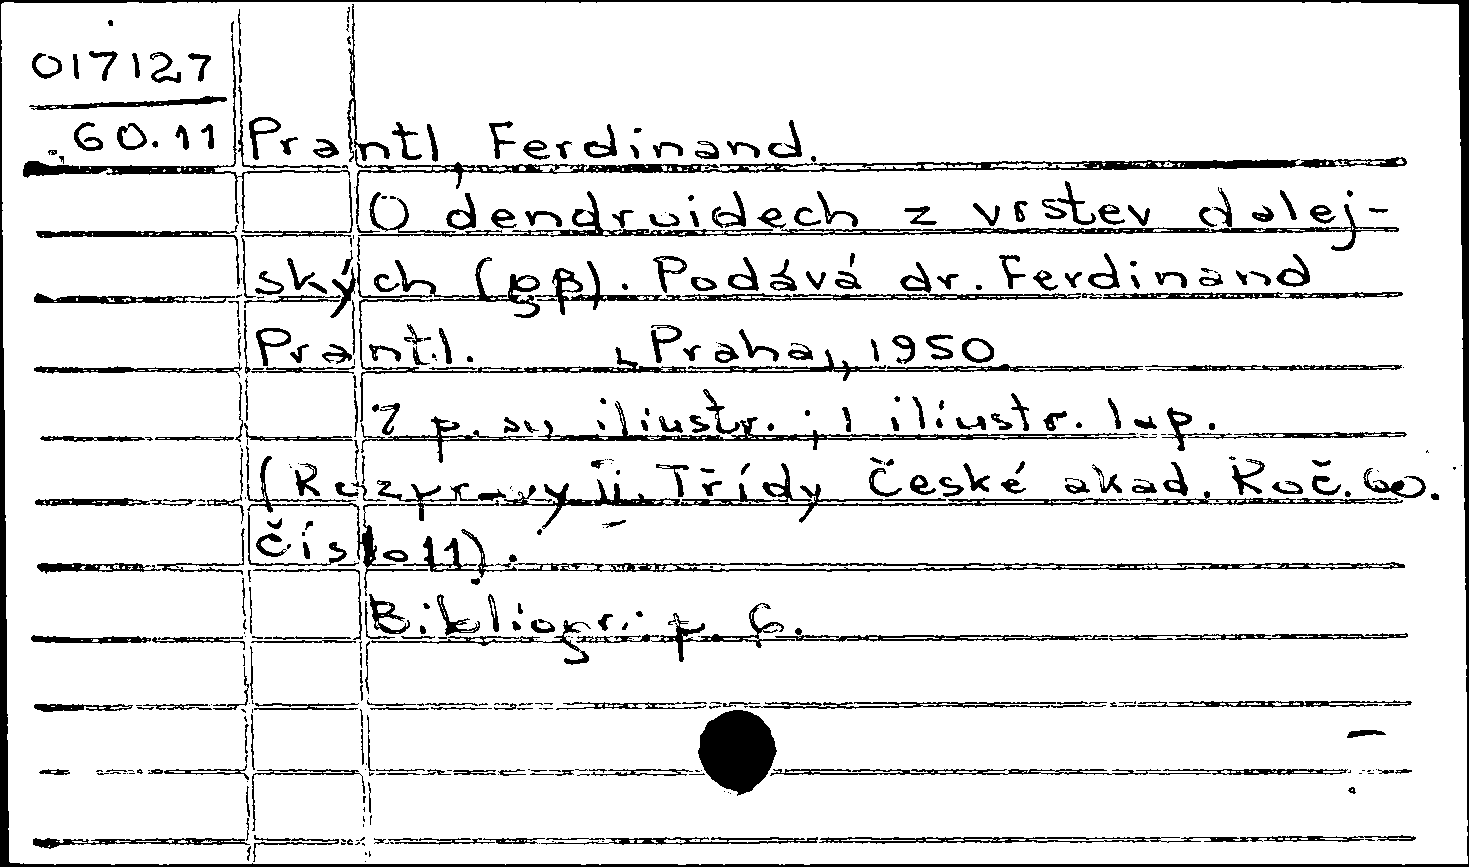 017127
60.11 Prantl, Ferdinand.
O dendroidech z vrstev dalej-
ských (gβ). Podává dr. Ferdinand
Prantl. [Praha], 1950
7 p. su iliustr.; 1 iliustr. lap.
(Rozpravy II. Třídy České akad. Roč. 60.
Číslo 11).
Bibliogr.: p. 6.